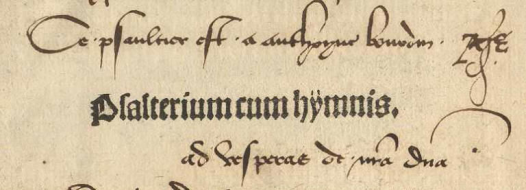 Ce psaultier est a anthoyne bourdin
Psalterium cum hymnis.
ad vesperas de nra dna